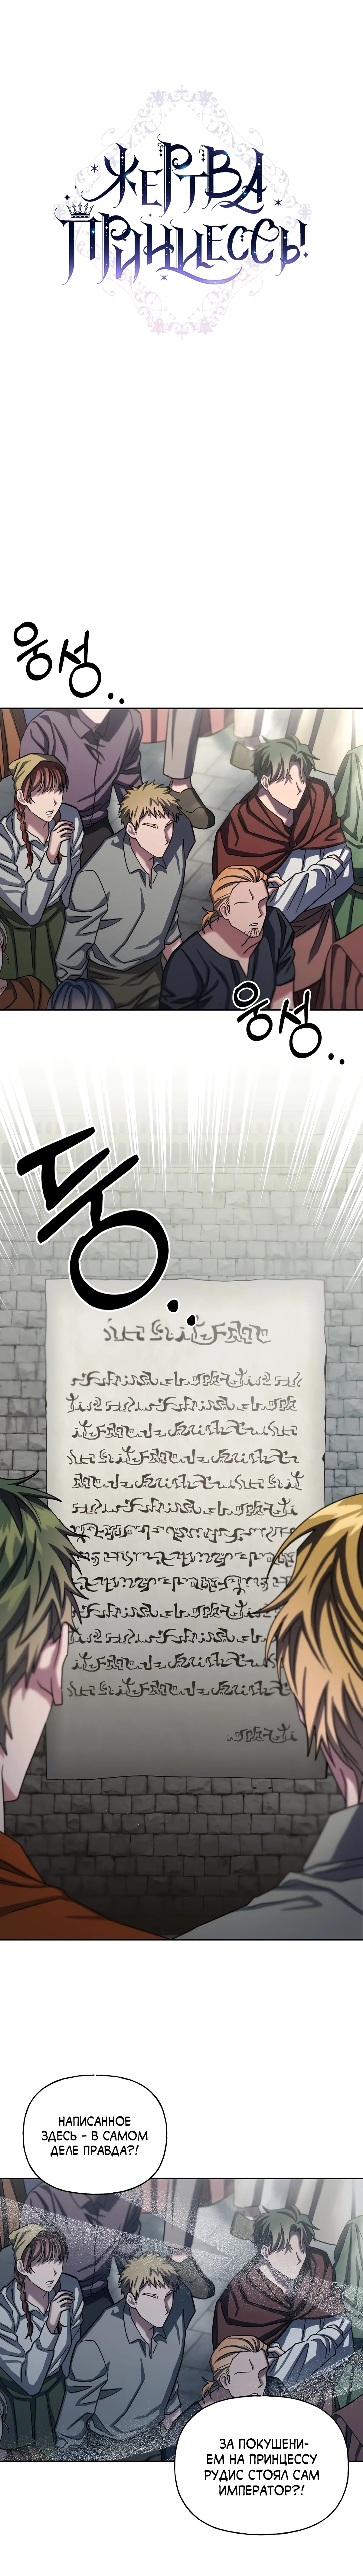 ЖЕРТВА
ПРИНЦЕССЫ!
웅성..
웅성..
둥..
НАПИСАННОЕ
ЗДЕСЬ - В САМОМ
ДЕЛЕ ПРАВДА?!
ЗА ПОКУШЕНИ-
ЕМ НА ПРИНЦЕССУ
РУДИС СТОЯЛ САМ
ИМПЕРАТОР?!